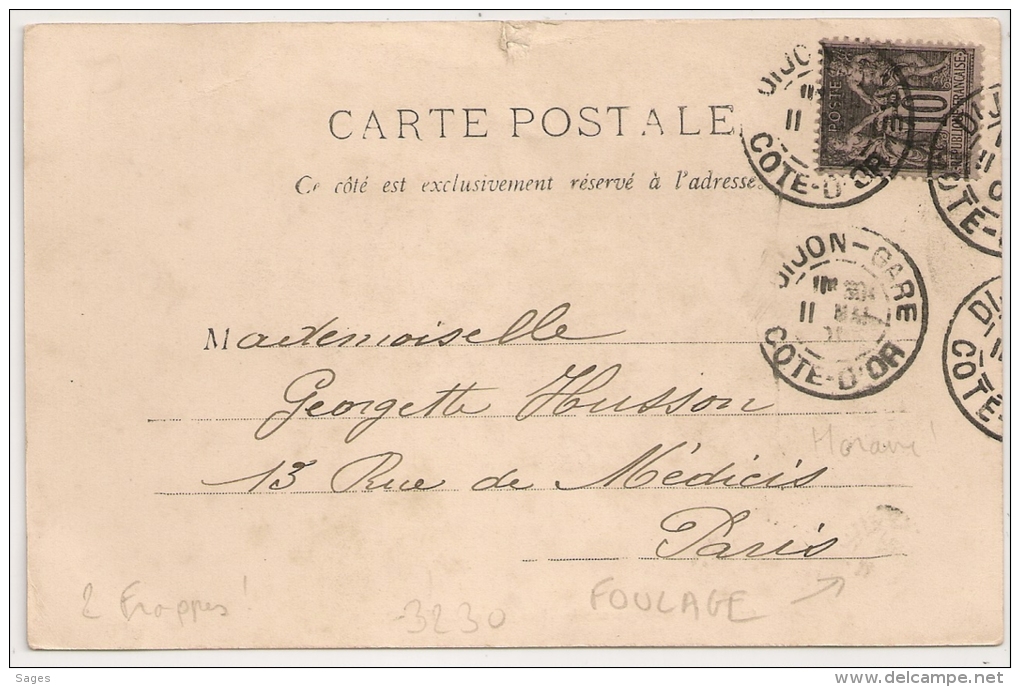 CARTE POSTALE
Ce côté est exclusivement réservé à l'adresse.
POSTES
10
REPUBLIQUE FRANÇAISE
DIJON-GARE
11
COTE-D'OR
DIJON-GARE
11
COTE-D'OR
DI
11
COTE-
DI
11
COTE-
Mademoiselle
Georgette Husson
13 Rue de Médicis
Paris
2 Frappes!
3230
FOULAGE
Sages
www.delcampe.net